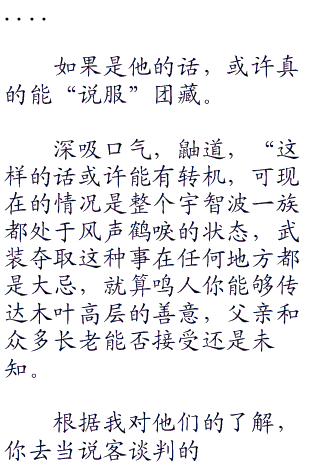 ....
如果是他的话，或许真
的能“说服”团藏。
深吸口气，鼬道，“这
样的话或许能有转机，可现
在的情况是整个宇智波一族
都处于风声鹤唳的状态，武
装夺取这种事在任何地方都
是大忌，就算鸣人你能够传
达木叶高层的善意，父亲和
众多长老能否接受还是未
知。
根据我对他们的了解，
你去当说客谈判的